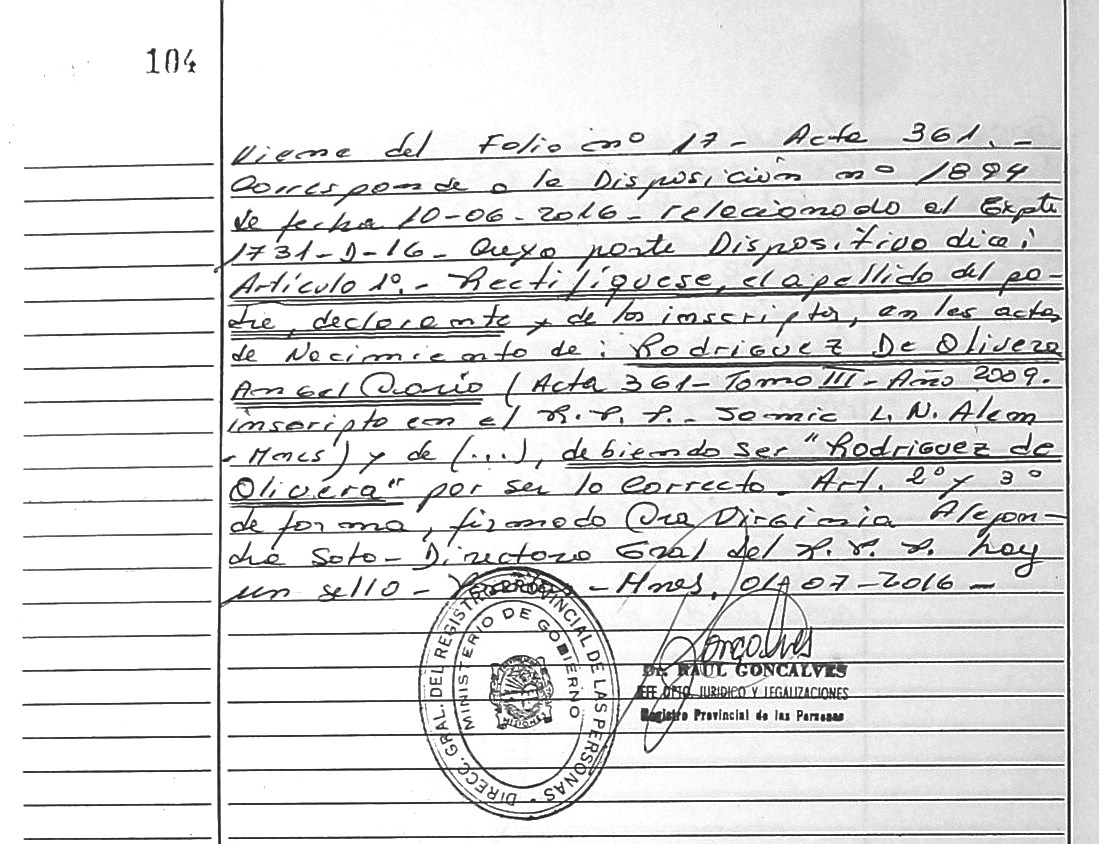 104
Viene del Folio nº 17 - Acta 361. -
Corresponde a la Disposición nº 1894
de fecha 10-06-2016 - relacionado al Expte
1731-D-16 - Cuya parte Dispositivo dice:
Artículo 1º. - Rectifíquese, el apellido del pa-
dre, declarante y de los inscriptos, en las actas
de Nacimiento de: Rodriguez De Olivera
Angel Dario (Acta 361 - Tomo III - Año 2009.
inscripto en el R.P.P. - Samic L.N. Alem
- Mnes) y de (...), debiendo ser "Rodriguez de
Olivera" por ser lo Correcto - Art. 2º y 3º
de forma, firmado Dra Virginia Alejan-
dra Soto - Directora Gral del R.P.P. hay
un sello - - Mnes, 07-2016 -
DIRECC. GRAL. DEL REGISTRO PROVINCIAL DE LAS PERSONAS -
MINISTERIO DE GOBIERNO
MISIONES
Goncalves
Dr. RAUL GONCALVES
JEFE DPTO. JURIDICO Y LEGALIZACIONES
Registro Provincial de las Personas